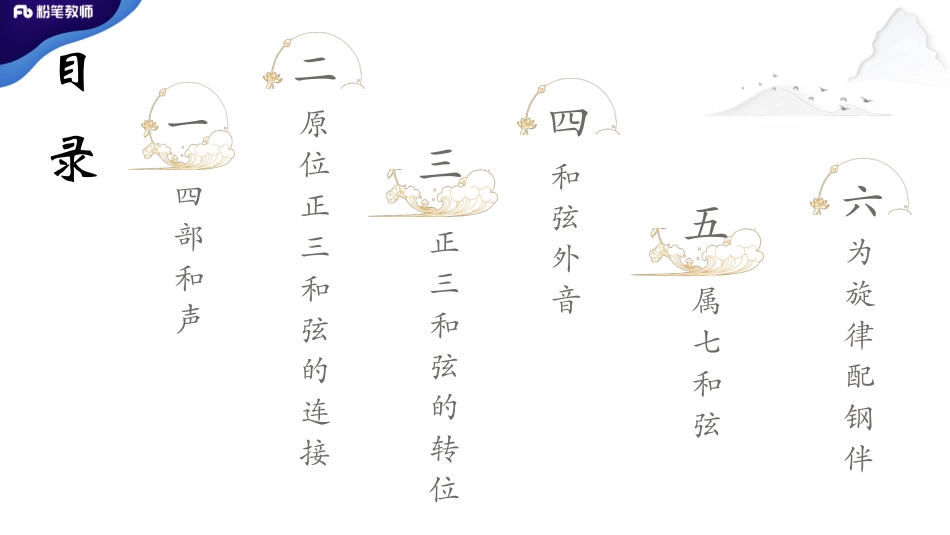 粉笔教师
目录
一
四部和声
二
原位正三和弦的连接
三
正三和弦的转位
四
和弦外音
五
属七和弦
六
为旋律配钢伴